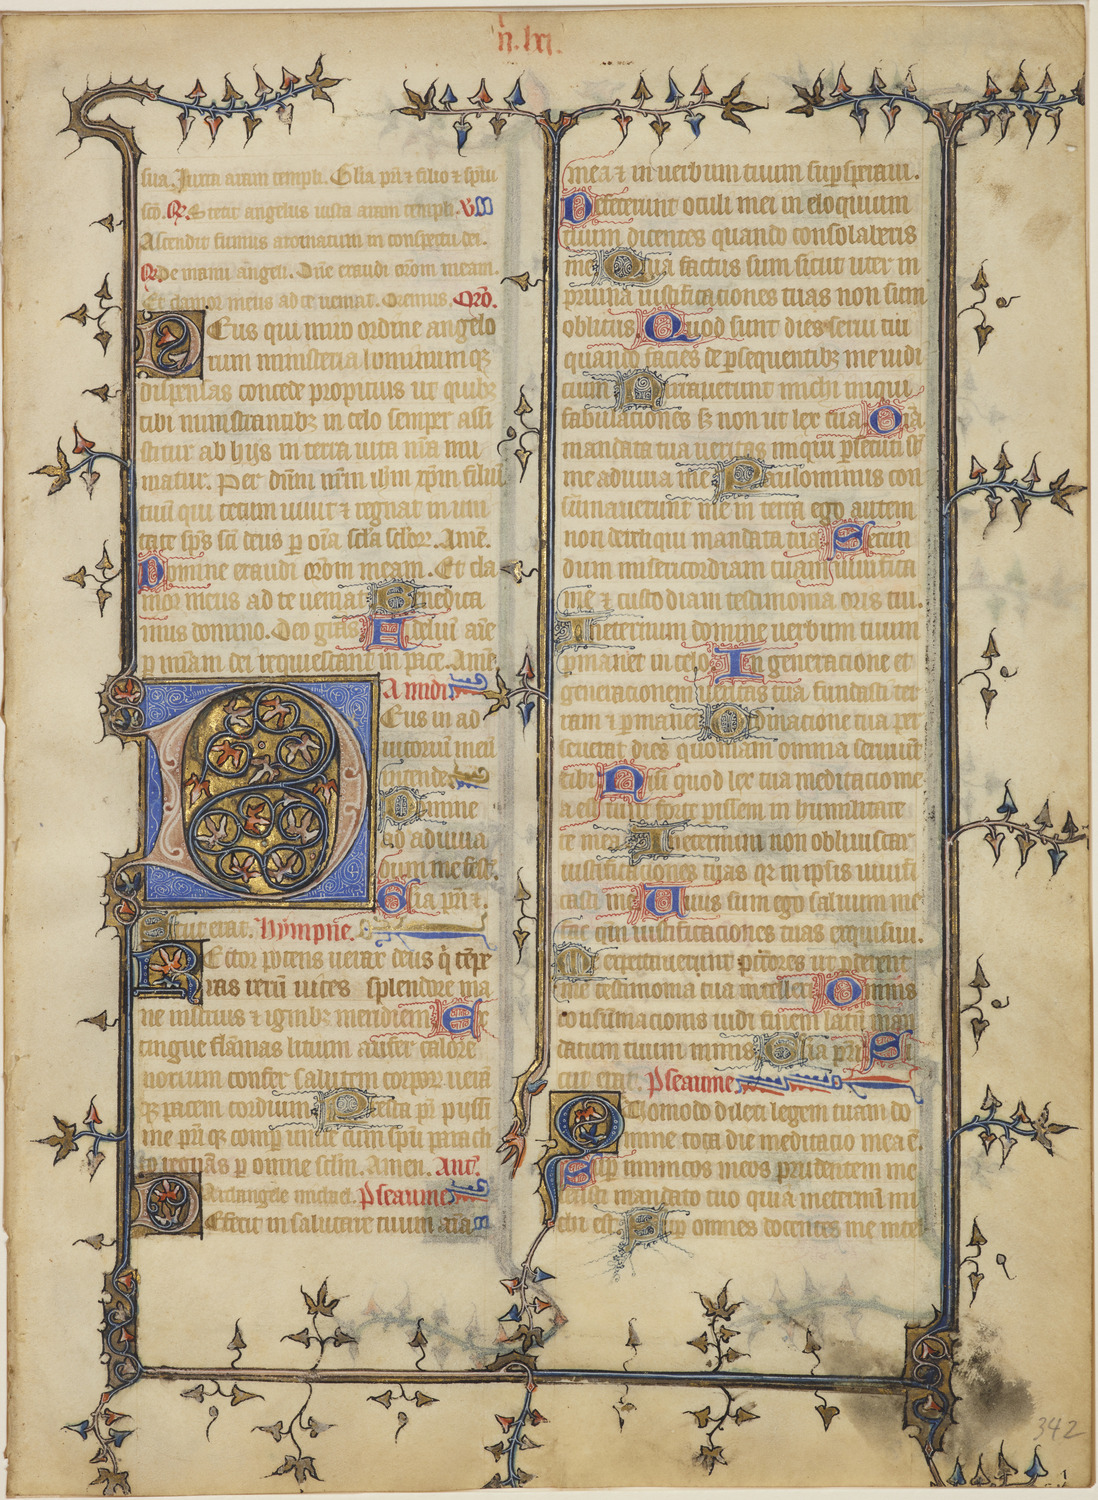 n. lxi.
sua. Iuxta aram templi. Glia pri & filio & spiu
sco. R. Stetit angelus iuxta aram templi. Vss
Ascendit fumus aromatum in conspectu dei.
R. De manu angeli. Dne exaudi orom meam.
Et clamor meus ad te ueniat. Oremus. Oro.
Deus qui miro ordine angelo
rum ministeria hominum qz
dispensas concede propitius ut quibz
tibi ministrantibz in celo semper assi
stitur ab hijs in terra uita nra mu
niatur. Per dnm nrm ihm xpm filiu
tuu qui tecum uiuit & regnat in uni
tate sps sci deus p oia scla sclor. Ame.
Domine exaudi orom meam. Et cla
mor meus ad te ueniat Benedica
mus domino. Deo gras Aielui ame
p miam dei requiescant in pace. Ame
A midi
Deus in ad
iutoriu meu
intende
Domine
ad adiuua
dum me festi.
Glia pri &.
Sicut erat. Hympne.
Rector potens uerax deus q tempe
ras rerum uices splendore ma
ne instruis & ignibz meridiem Ex
tingue flamas litium aufer calore
noxium confer salutem corpor uera
qz pacem cordium Presta pr pijssi
me pri qz compar unice cum spu parach
to regnas p omne sclm. Amen. Ant.
Archangele michael. Pseaume
Deffecit in salutare tuum aia
mea & in uerbum tuum supsperaui.
Deffecerunt oculi mei in eloquium
tuum dicentes quando consolaberis
me Quia factus sum sicut uter in
pruina iustificaciones tuas non sum
oblitus. Quod sunt dies serui tui
quando facies de psequentibz me iudi
cium Narrauerunt michi iniqui
fabulationes s; non ut lex tua Oia
mandata tua ueritas iniqui psecuti st
me adiuua me Paulominus con
sumauerunt me in terra ego autem
non dereliqui mandata tua Secun
dum misericordiam tuam uiuifica
me & custodiam testimonia oris tui.
Ineternum domine uerbum tuum
pmanet in celo In generacione et
generacionem ueritas tua fundasti ter
ram & pmanet Ordinacione tua per
seuerat dies quoniam omnia seruiut
tibi Nisi quod lex tua meditacio me
a est tunc forte pissem in humilitate
te mea Ineternum non obliuiscar
iustificaciones tuas qr in ipsis uiuifi
casti me Tuus sum ego saluum me
fac qm iustificaciones tuas exquisiui.
Me expectauerunt pctores ut pderent
me testimonia tua intellexi Omnis
consumacionis uidi finem latu man
datum tuum nimis Glia pri Si
cut erat. Pseaume
Quomodo dilexi legem tuam do
mine tota die meditacio mea e.
Sup inimicos meos prudentem me
fecisti mandato tuo quia ineternu mi
chi est Sup omnes docentes me intel
342